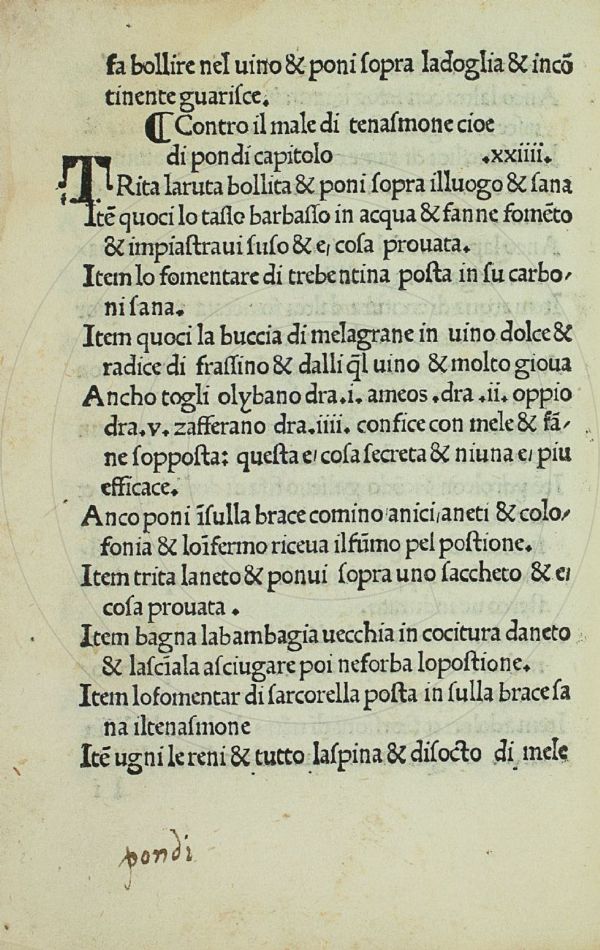 fa bollire nel uino & poni ſopra ladoglia & incō
tinente guariſce.
¶ Contro il male di tenaſmone cioe
di pondi capitolo .xxiiii.
TRita laruta bollita & poni ſopra illuogo & ſana
Itē quoci lo taſſo barbaſſo in acqua & fanne fomēto
& impiaſtraui ſuſo & e, coſa prouata.
Item lo fomentare di trebentina poſta in ſu carbo/
ni ſana.
Item quoci la buccia di melagrane in uino dolce &
radice di fraſſino & dalli q̄l uino & molto gioua
Ancho togli olybano dra.i. ameos .dra .ii. oppio
dra.v. zafferano dra.iiii. confice con mele & fā/
ne ſoppoſta: queſta e, coſa ſecreta & niuna e, piu
efficace.
Anco poni īſulla brace comino anici, aneti & colo/
fonia & loīfermo riceua ilfūmo pel poſtione.
Item trita laneto & ponui ſopra uno ſaccheto & e,
coſa prouata .
Item bagna labambagia uecchia in cocitura daneto
& laſciala aſciugare poi neforba lopoſtione.
Item lofomentar di ſarcorella poſta in ſulla brace ſa
na iltenaſmone
Itē ugni le reni & tutto laſpina & diſocto di mele
pondi